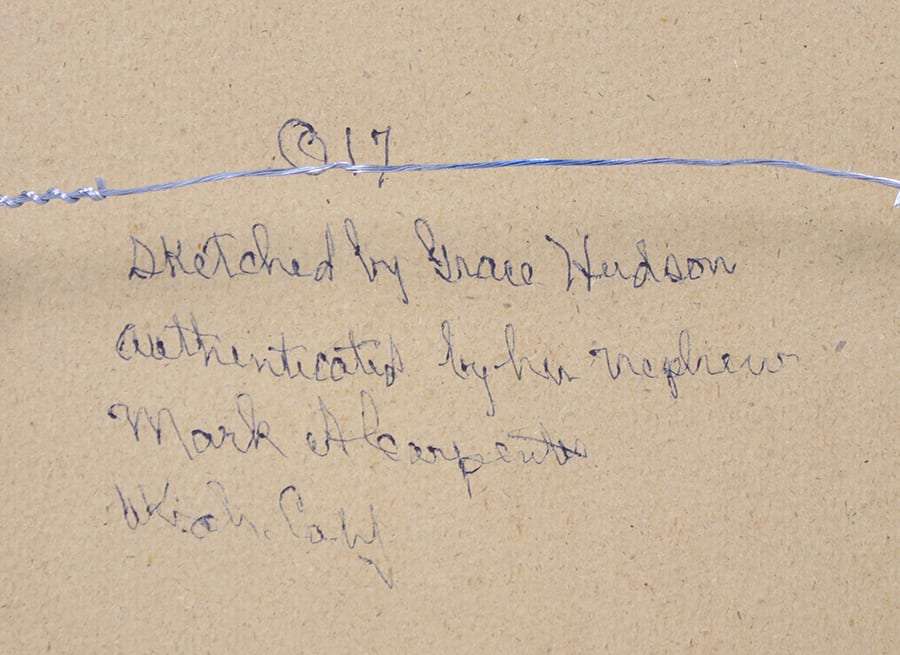 17
Sketched by Grace Hudson
Authenticated by her nephew
Mark A Carpenter
Ukiah. Calif